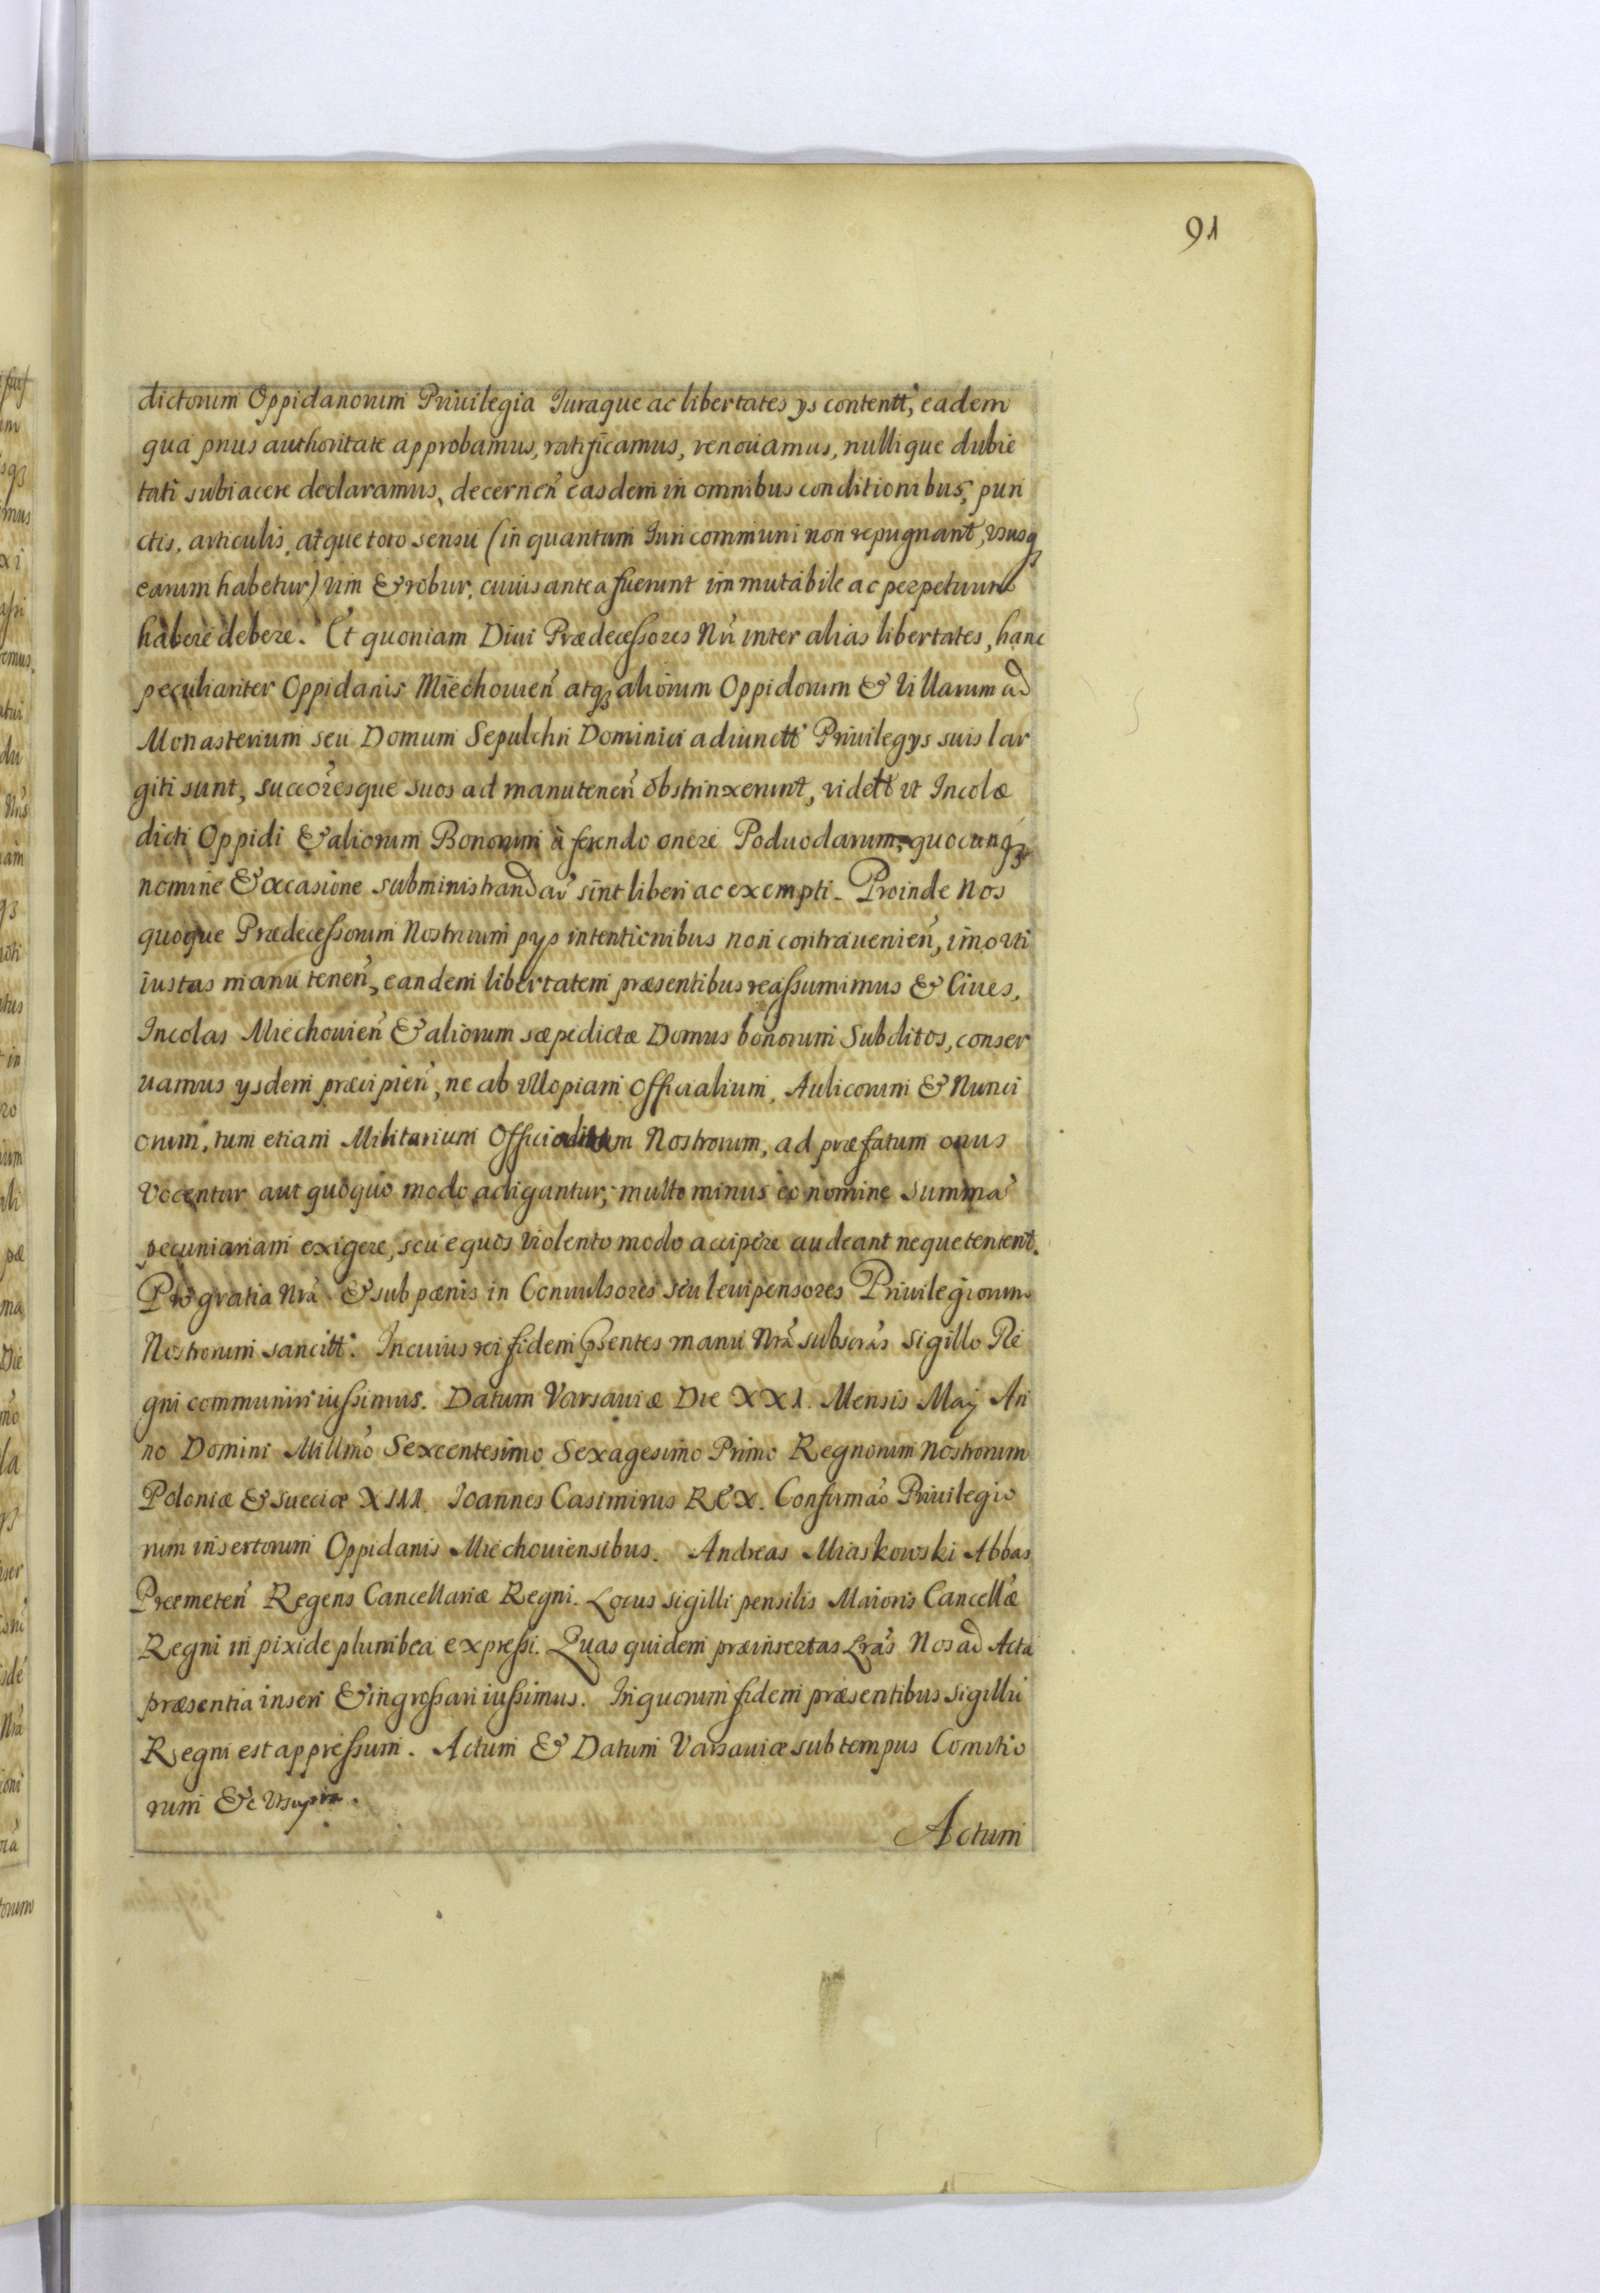 91
dictorum Oppidanorum Priuilegia Iuraque ac libertates ys contentt, eadem
qua prius authoritate approbamus, ratificamus, renouamus, nullique dubie
tati subiacere declaramus, decernen̄ easdem in omnibus conditionibus, pun
ctis, articulis, atque toto sensu (in quantum Iuri communi non repugnant, vsusq
earum habetur) vim & robur, cuius antea fuerunt immutabile ac perpetuum
habere debere. Et quoniam Diui Prædecessores Nr̄i inter alias libertates, hanc
peculiariter Oppidanis Miechouien̄ atq aliorum Oppidorum & Villarum ad
Monasterium seu Domum Sepulchri Dominici adiunctt Priuilegys suis lar
giti sunt, succōresque suos ad manutenen̄ obstrinxerunt, vidett vt Incolæ
dicti Oppidi & aliorum Bonorum à ferendo onere Poduodarum, quocunq
nomine & occasione subministrandar̄ sint liberi ac exempti. Proinde Nos
quoque Prædecessorum Nostrorum pys intentionibus non contrauenien̄, imo vti
iustas manutenen̄, eandem libertatem præsentibus reassumimus & Ciues,
Incolas Miechouien̄ & aliorum sæpedictæ Domus bonorum Subditos, conser
uamus ysdem præcipien̄, ne ab vllo piam Officialium, Aulicorum & Nunci
orum, tum etiam Militarium Officialium Nostrorum, ad præfatum onus
vocentur aut quoquo modo adigantur, multo minus eo nomine summā
pecuniariam exigere, seu equos violento modo accipere audeant neque tentent.
Pro gratia Nr̄a & sub pœnis in Conuulsores seu leuipensores Priuilegiorum
Nostrorum sancitt. In cuius rei fidem p̄sentes manu Nr̄a subscr̄as Sigillo Re
gni communiri iussimus. Datum Varsauiæ Die XXI. Mensis May An
no Domini Millm̄o Sexcentesimo Sexagesimo Primo Regnorum Nostrorum
Poloniæ & Sueciæ XIII. Ioannes Casimirus REX. Confirmāo Priuilegio
rum insertorum Oppidanis Miechouiensibus. Andreas Miaskowski Abbas
Premeten̄ Regens Cancellariæ Regni. Locus sigilli pensilis Maioris Cancell̄æ
Regni in pixide plumbea expressi. Quas quidem præinsertas Lrās Nos ad Acta
præsentia inseri & ingrossari iussimus. In quorum fidem præsentibus Sigillū
Regni est appressum. Actum & Datum Varsauiæ sub tempus Comitio
rum &c vt supra.
Actum